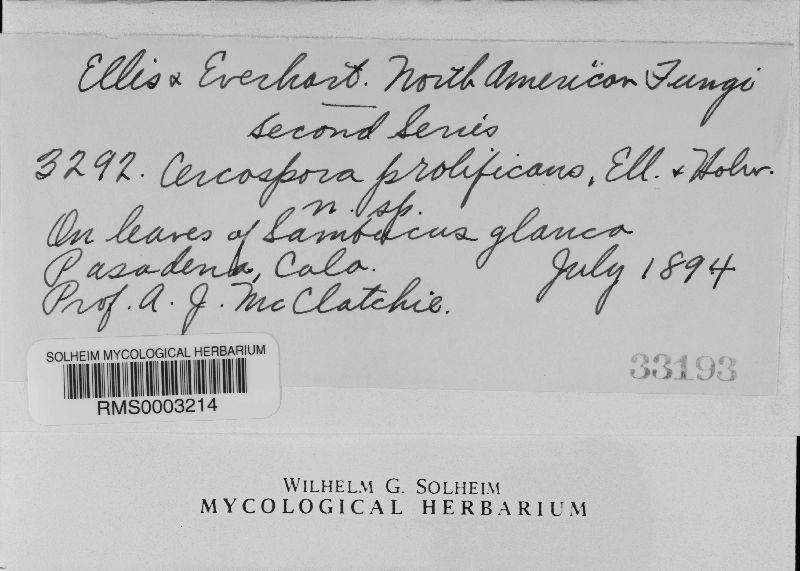 Ellis & Everhart. North American Fungi
Second Series
3292. Cercospora prolificans, Ell. & Holw.
n. sp.
On leaves of Sambucus glauca
Pasadena, Calo. July 1894
Prof. A. J. McClatchie.
SOLHEIM MYCOLOGICAL HERBARIUM
RMS0003214
33193
WILHELM G. SOLHEIM
MYCOLOGICAL HERBARIUM